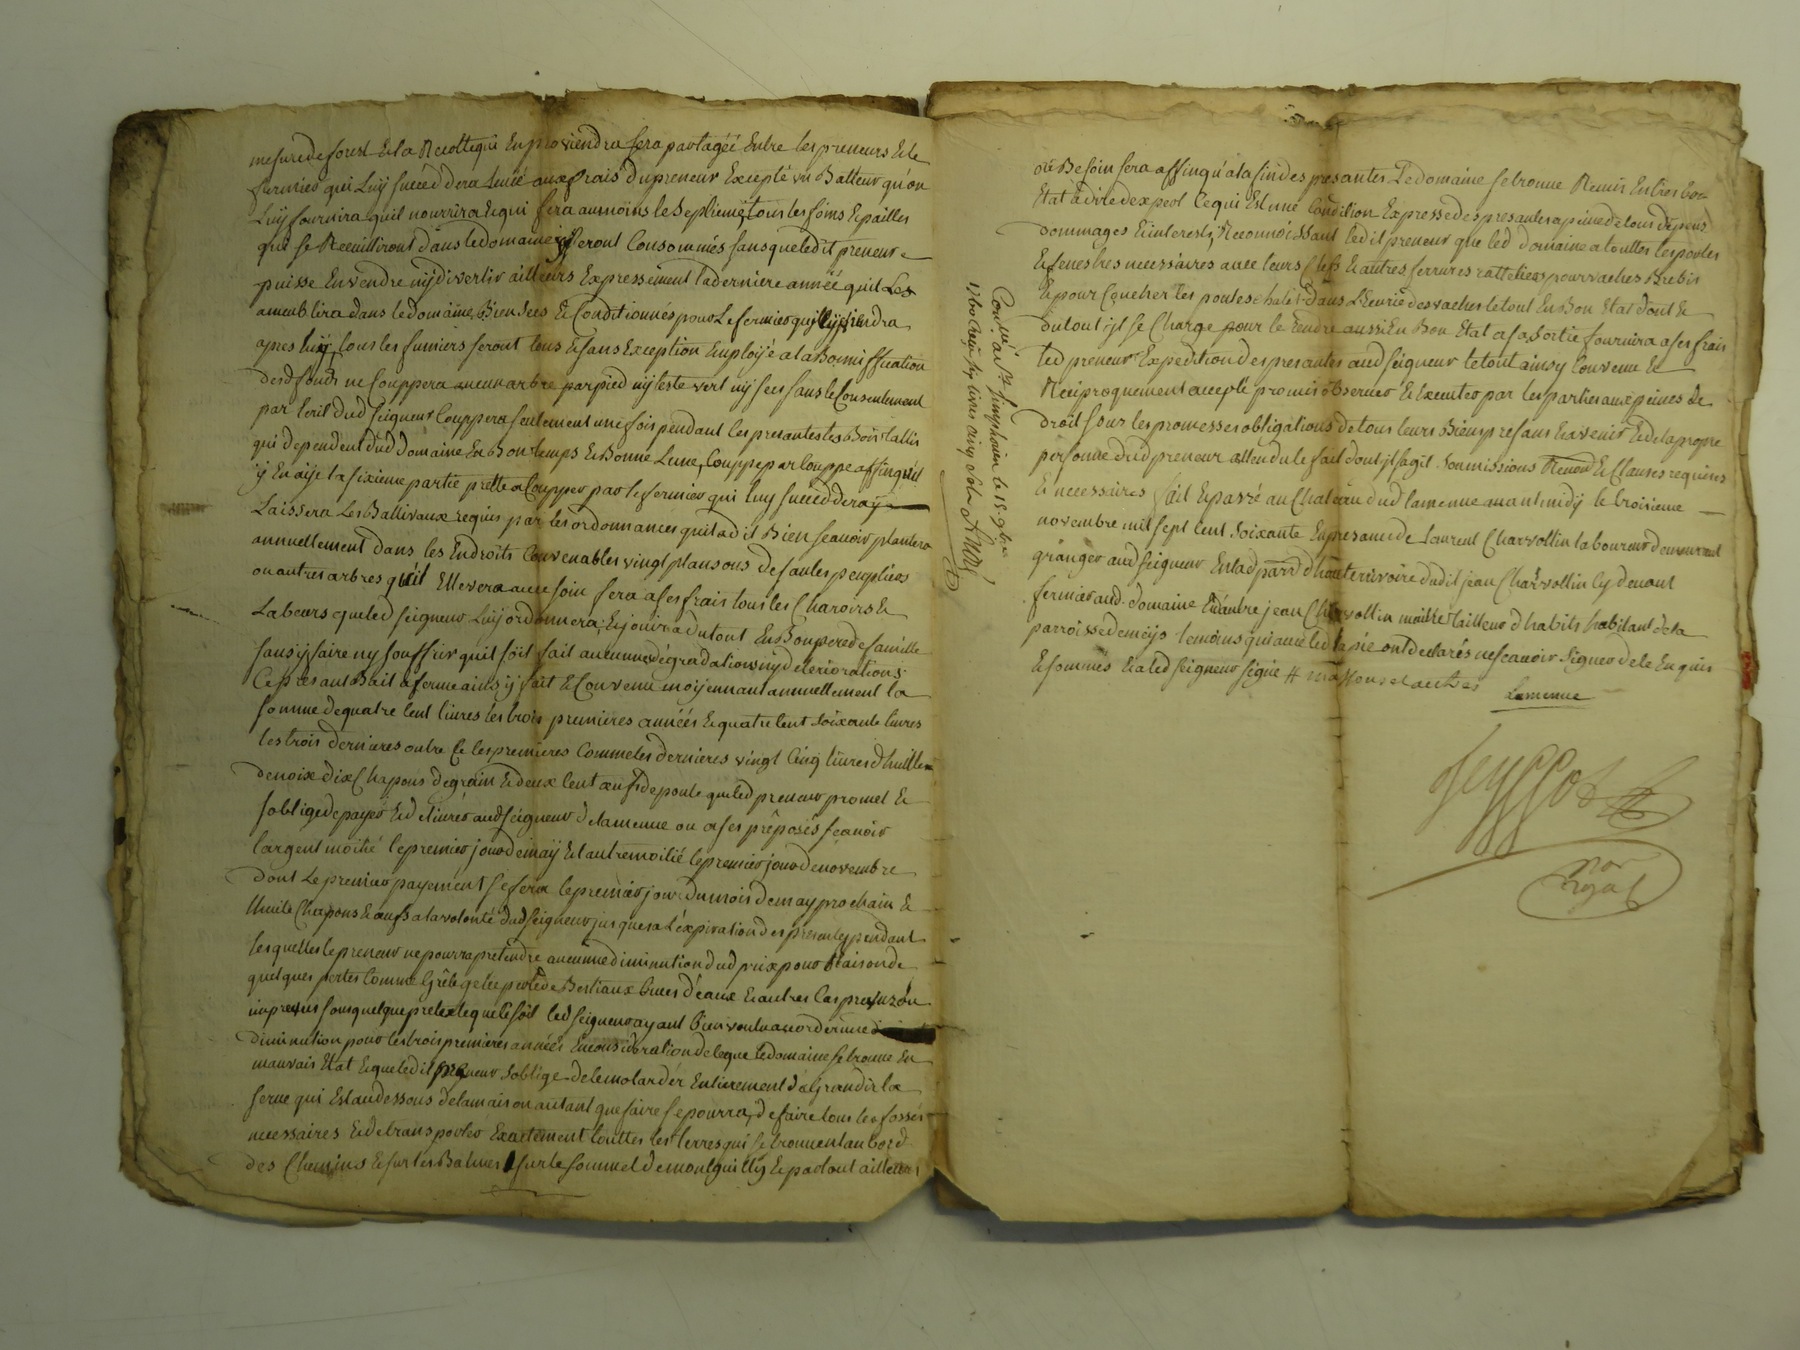 mesure de forest & la Recolte qui En proviendra sera partagéé Entre les preneurs & le
fermier qui Luy succeddera Levée aux frais du preneur Excepté un Batteur qu'on
Luy fournira quil nourrira & qui sera aumoins le Septieme, tous les foins & pailles
qui se Recuilliront dans le domaine y seront Consommés sans que ledit preneur
puisse En vendre ny divertir ailleurs Expressement la derniere annéé quil Les
ameublira dans le domaine, Bien secs & Conditionnés pour Le fermier qui viendra
apres luy, tous les fumiers seront tous & sans Exception Employé a la Bonniffication
desd fonds ne Couppera aucun arbre par pied ny teste vert ny secs sans le Consentement
par Ecrit dud seigneur Couppera seulement une fois pendant les presantes les Bois tallis
qui dependent dud Domaine En Bon temps & Bonne Lune, Couppe par Couppe affinqu'il
y En aije la sixieme partie prette a Coupper par le fermier qui luy succedderay
Laissera Les Ballivaux requis par les ordonnances quil a dit Bien scavoir plantera
annuellement dans les Endroits Convenables vingt plansons de saules peupliers
ou autres arbres qu'il Ellevera avec soin fera a ses frais tous les Charois &
Labeurs que led seigneur Luy ordonnera; & jouira du tout En Bon pere de famille
sans y faire ny souffrir quil soit fait aucunnes dégradations ny deteriorations.
Ce presant Bail a ferme ainsy fait & Convenu moyennant annuellement la
somme de quatre Cent livres les trois premieres annéés & quatre Cent soixante livres
les trois dernieres outre & les premieres Comme les dernieres vingt Cinq livres d'huille
de noix dix Chapons de grain & deux Cent œufs de poule que led preneur promet &
s'oblige de payer & delivrer aud seigneur de lamenue ou a ses préposés scavoir
l'argent moitié le premier jour de may & l'autre moitié le premier jour de novembre
dont Le premier payement se fera le premier jour du mois de may prochain &
l'huile Chapons & œufs a la volonté dud seigneur jusques a L'éxpiration des presantes pendant
lesquelles le preneur ne pourra pretendre aucunne diminution dud prix pour Raison de
quelques pertes Comme Grêle gelée perte de Bestiaux Crues d'eaux & autres Cas prevus ou
imprevus sous quelque pretexte que se soit led seigneur ayant Bien voulu accorder une
diminution pour les trois premieres annéés En consideration de ce que le domaine se trouve En
mauvais Etat & que ledit preneur s'oblige de le Entierement d'aGrandir la
serve qui Est au dessous de la maison autant que faire se pourra, de faire tous les fossés
necessaires & de transporter Exactement touttes les terres qui se trouvent au bord
des Chemins & sur les Balmes & sur le sommet de & partout ailleurs
Conllé a St simphorien le 15. 9bre
1760 Reçu six livre
où Besoin sera affinqu'a la fin des presantes Le domaine se trouve Remis En tres bon
Etat a dire d'expert Ce qui Est une Condition Expresse des presantes a peine de tous depens
dommages & interests, Reconnoissant ledit preneur que led domaine a touttes les portes
& fenestres necessaires avec leurs Clefs & autres ferrures ratteliers pour vaches Brebis
& pour Coucher les poules dans L'Ecurie des vaches le tout En Bon Etat dont &
du tout il se Charge pour le rendre aussi En Bon Etat a sa sortie fournira a ses frais
led preneur Expedition des presantes aud seigneur le tout ainsy Convenu &
Reciproquement accepté promis observer & Executer par les parties aux peines de
droit sous les promesses obligations de tous leurs Biens presans & avenir & de la propre
personne dud preneur attendu le fait dont il s'agit. Soumissions Renon & Clauses requises
& necessaires fait & passé au Chateau dud lamenue avant midy le troisieme
novembre mil sept cent soixante En presance de Laurent Charvollin laboureur demeurant
granger aud seigneur En lad parr d'hauterivoire dudit jean Charvollin Cy devant
fermier aud. domaine & d'autre jean Charvollin maitre tailleur d'habits habitant de la
parroisse de meys temoins qui avec led ont declarés ne scavoir signer de ce Enquis
& sommés & a led seigneur signé #
Lamenue
no.r
royal